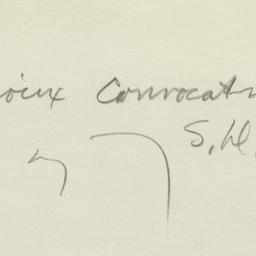 ioux Convocati
S. D.